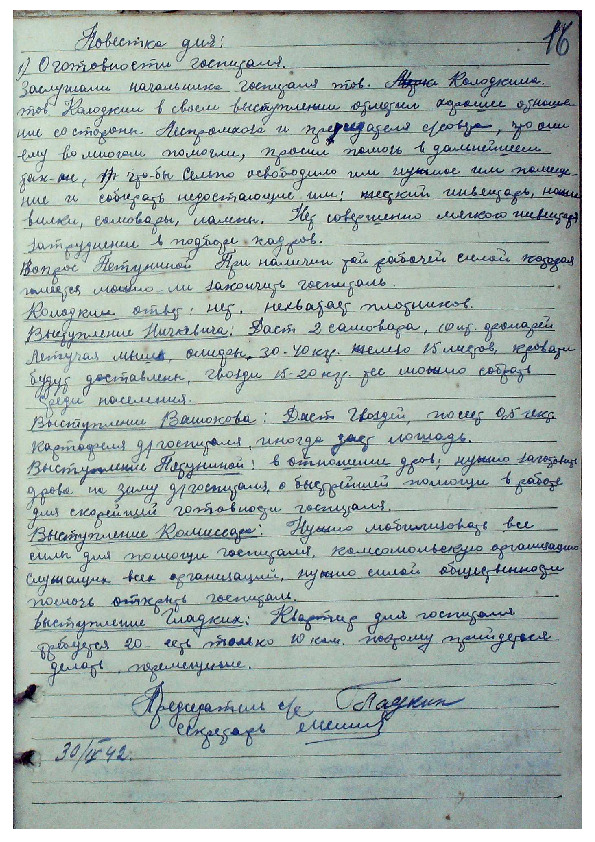 16
Повестка дня:
1) О готовности госпиталя.
Заслушали начальника госпиталя тов. Колодкина
тов Колодкин в своем выступлении отметил хорошее отноше-
ние со стороны Леспромхоза и председателя с/совета, что они
ему во многом помогли, просил помочь в дальнейшем
так-же, что-бы Сельпо освободило им нужное им помеще-
ние и собирать недостающие им: жесткий инвентарь, ножи
вилки, самовары, лампы. Нет совершенно мягкого инвентаря
затруднение в подборе кадров.
Вопрос Петуниной При наличии той рабочей силой которая
имеется можно-ли закончить госпиталь.
Колодкин ответ: нет. нехватает плотников.
Выступление: Даст 2 самовара, 10 шт. фонарей
Летучая мышь, 30-40 кгр. железо 15 листов, кровати
будут доставлены, гвозди 15-20 кгр. все можно собрать
среди населения.
Выступление: Даст гвоздей, посеет 0,5 гект.
картофеля д/госпиталя, иногда дает лошадь.
Выступление Петуниной: в отношении дров; нужно заготовить
дрова на зиму д/госпиталя, о быстрейшей помощи в работе
для скорейшей готовности госпиталя.
Выступление Комиссара: Нужно мобилизовать все
силы для помощи госпиталя, комсомольскую организацию
служащих всех организаций, нужно силой общественности
помочь открыть госпиталь.
Выступление Гладких: Квартир для госпиталя
требуется 20 есть только 10 ком. поэтому придеться
делать перемещение.
Председатель с/с
секретарь
30/IX 42.